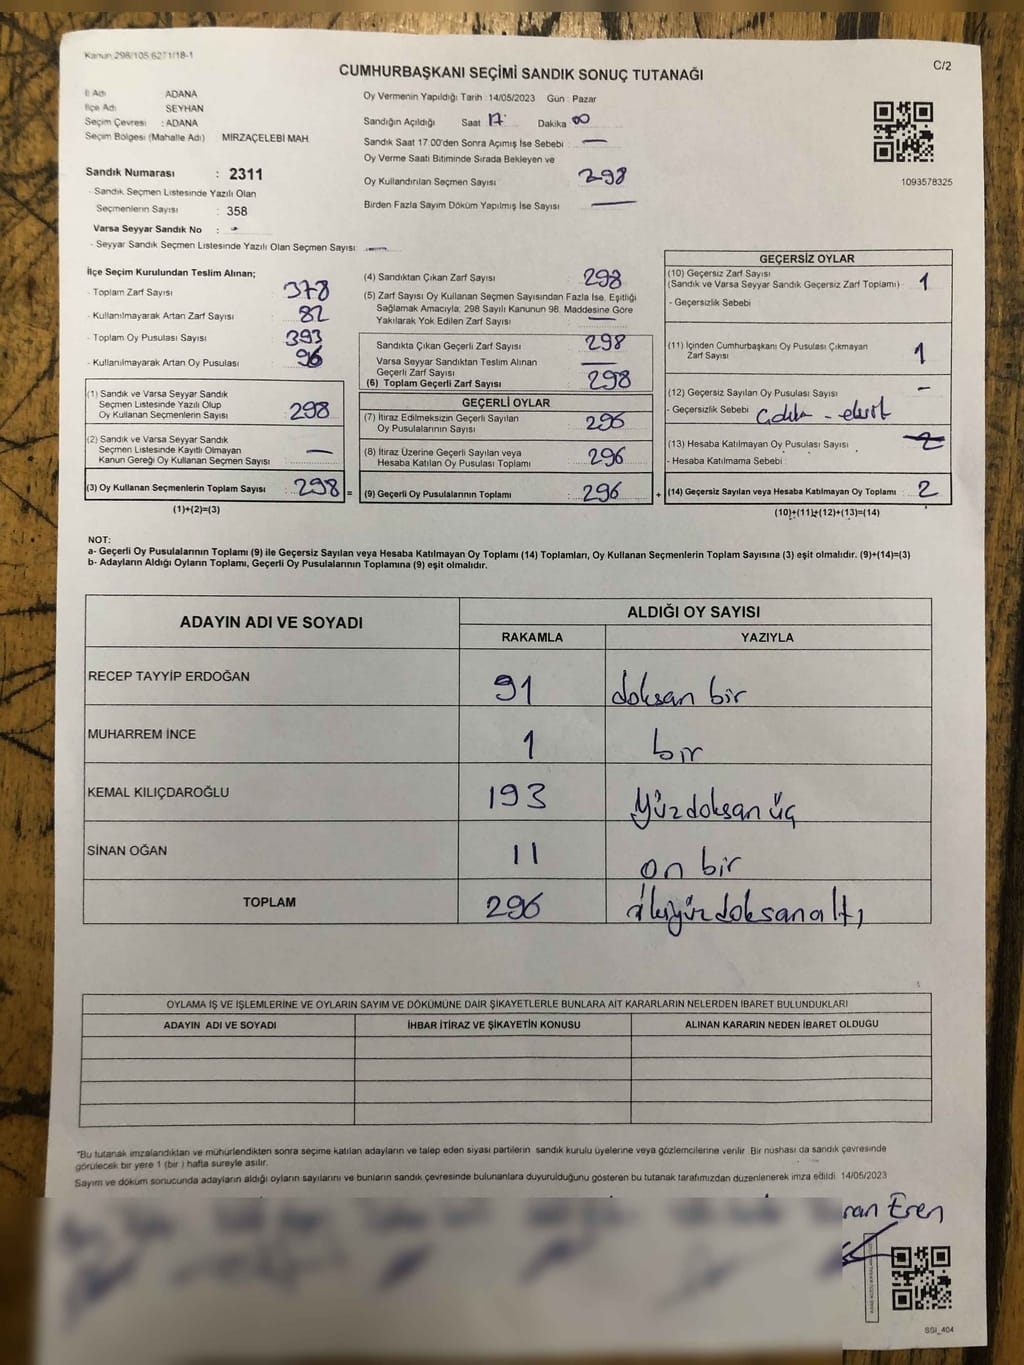 Kanun 298/105 6271/18-1
C/2
CUMHURBAŞKANI SEÇİMİ SANDIK SONUÇ TUTANAĞI
İl Adı ADANA
İlçe Adı SEYHAN
Seçim Çevresi : ADANA
Seçim Bölgesi (Mahalle Adı) MİRZAÇELEBİ MAH
Sandık Numarası : 2311
- Sandık Seçmen Listesinde Yazılı Olan
Seçmenlerin Sayısı : 358
Varsa Seyyar Sandık No : -
- Seyyar Sandık Seçmen Listesinde Yazılı Olan Seçmen Sayısı: —
Oy Vermenin Yapıldığı Tarih : 14/05/2023 Gün : Pazar
Sandığın Açıldığı Saat 17 Dakika 00
Sandık Saat 17:00'den Sonra Açımış İse Sebebi —
Oy Verme Saati Bitiminde Sırada Bekleyen ve
Oy Kullandırılan Seçmen Sayısı 298
Birden Fazla Sayım Döküm Yapılmış İse Sayısı —
1093578325
İlçe Seçim Kurulundan Teslim Alınan;
- Toplam Zarf Sayısı 378
- Kullanılmayarak Artan Zarf Sayısı 82
- Toplam Oy Pusulası Sayısı 393
- Kullanılmayarak Artan Oy Pusulası 96
(1) Sandık ve Varsa Seyyar Sandık
Seçmen Listesinde Yazılı Olup
Oy Kullanan Seçmenlerin Sayısı 298
(2) Sandık ve Varsa Seyyar Sandık
Seçmen Listesinde Kayıtlı Olmayan
Kanun Gereği Oy Kullanan Seçmen Sayısı —
(3) Oy Kullanan Seçmenlerin Toplam Sayısı : 298 =
(1)+(2)=(3)
(4) Sandıktan Çıkan Zarf Sayısı 298
(5) Zarf Sayısı Oy Kullanan Seçmen Sayısından Fazla İse, Eşitliği
Sağlamak Amacıyla, 298 Sayılı Kanunun 98. Maddesine Göre
Yakılarak Yok Edilen Zarf Sayısı —
Sandıkta Çıkan Geçerli Zarf Sayısı 298
Varsa Seyyar Sandıktan Teslim Alınan
Geçerli Zarf Sayısı —
(6) Toplam Geçerli Zarf Sayısı 298
GEÇERLİ OYLAR
(7) İtiraz Edilmeksizin Geçerli Sayılan
Oy Pusulalarının Sayısı 296
(8) İtiraz Üzerine Geçerli Sayılan veya
Hesaba Katılan Oy Pusulası Toplamı 296
(9) Geçerli Oy Pusulalarının Toplamı : 296 +
GEÇERSİZ OYLAR
(10) Geçersiz Zarf Sayısı
(Sandık ve Varsa Seyyar Sandık Geçersiz Zarf Toplamı) 1
- Geçersizlik Sebebi
(11) İçinden Cumhurbaşkanı Oy Pusulası Çıkmayan
Zarf Sayısı 1
(12) Geçersiz Sayılan Oy Pusulası Sayısı —
- Geçersizlik Sebebi
(13) Hesaba Katılmayan Oy Pusulası Sayısı 2
- Hesaba Katılmama Sebebi
(14) Geçersiz Sayılan veya Hesaba Katılmayan Oy Toplamı 2
(10)+(11)+(12)+(13)=(14)
NOT:
a- Geçerli Oy Pusulalarının Toplamı (9) ile Geçersiz Sayılan veya Hesaba Katılmayan Oy Toplamı (14) Toplamları, Oy Kullanan Seçmenlerin Toplam Sayısına (3) eşit olmalıdır. (9)+(14)=(3)
b- Adayların Aldığı Oyların Toplamı, Geçerli Oy Pusulalarının Toplamına (9) eşit olmalıdır.
ADAYIN ADI VE SOYADI ALDIĞI OY SAYISI
RAKAMLA YAZIYLA
RECEP TAYYİP ERDOĞAN 91 doksan bir
MUHARREM İNCE 1 bir
KEMAL KILIÇDAROĞLU 193 Yüzdoksan üç
SİNAN OĞAN 11 on bir
TOPLAM 296 ikiyüzdoksanaltı
OYLAMA İŞ VE İŞLEMLERİNE VE OYLARIN SAYIM VE DÖKÜMÜNE DAİR ŞİKAYETLERLE BUNLARA AİT KARARLARIN NELERDEN İBARET BULUNDUKLARI
ADAYIN ADI VE SOYADI İHBAR İTİRAZ VE ŞİKAYETİN KONUSU ALINAN KARARIN NEDEN İBARET OLDUĞU
*Bu tutanak imzalandıktan ve mühürlendikten sonra seçime katılan adayların ve talep eden siyasi partilerin sandık kurulu üyelerine veya gözlemcilerine verilir. Bir nüshası da sandık çevresinde
görülecek bir yere 1 (bir) hafta süreyle asılır.
Sayım ve döküm sonucunda adayların aldığı oyların sayılarını ve bunların sandık çevresinde bulunanlara duyurulduğunu gösteren bu tutanak tarafımızdan düzenlenerek imza edildi. 14/05/2023
ran Eren
SSI_404